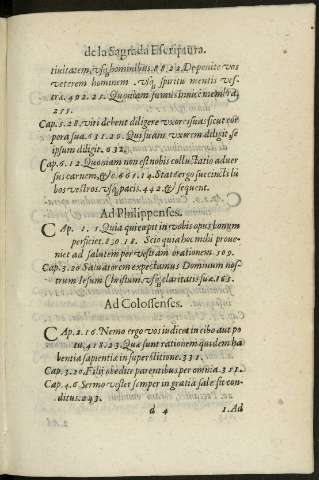 de la Sagrada Escriptura.
tiuitatem, vsq; hominibus. 88.22. Deponite vos
veterem hominem. vsq; spiritu mentis ves-
tra. 402.21. Quoniam sumus inuicē membra.
255.
Cap. 5.28. viri debent diligere vxores suas sicut cor
pora sua. 631.20. Qui suam vxorem diligit se
ipsum diligit. 632.
Cap. 6.12. Quoniam non est nobis colluctatio aduer
sus carnem, & c. 661.14. State ergo succincti lū
bos vestros. vsq; pacis. 442. & sequent.
Ad Philippenses.
CAp. 1.1. Quia qui cœpit in vobis opus bonum
perficiet. 830.18. Scio quia hoc mihi proue-
niet ad salutem per vestram orationem. 509.
Cap. 3.20. Saluatorem expectamus Dominum nos-
trum Iesum Christum. vsq; claritatis sua. 165.
Ad Colossenses.
CAp. 2.16. Nemo ergo vos iudicet in cibo aut po
tu. 418.23. Quæ sunt rationem quidem ha
bentia sapientia in superstitione. 331.
Cap. 3.20. Filij obedite parentibus per omnia. 351.
Cap. 4.6. Sermo vester semper in gratia sale sit con
ditus. 243.
d 4 1. Ad